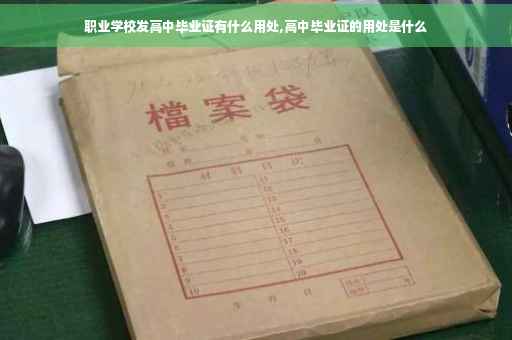 职业学校发高中毕业证有什么用处,高中毕业证的用处是什么
檔案袋
材料目次
1 11
2 12
3 13
4 14
5 15
6 16
7 17
8 18
9 19
10 20
年 月 日